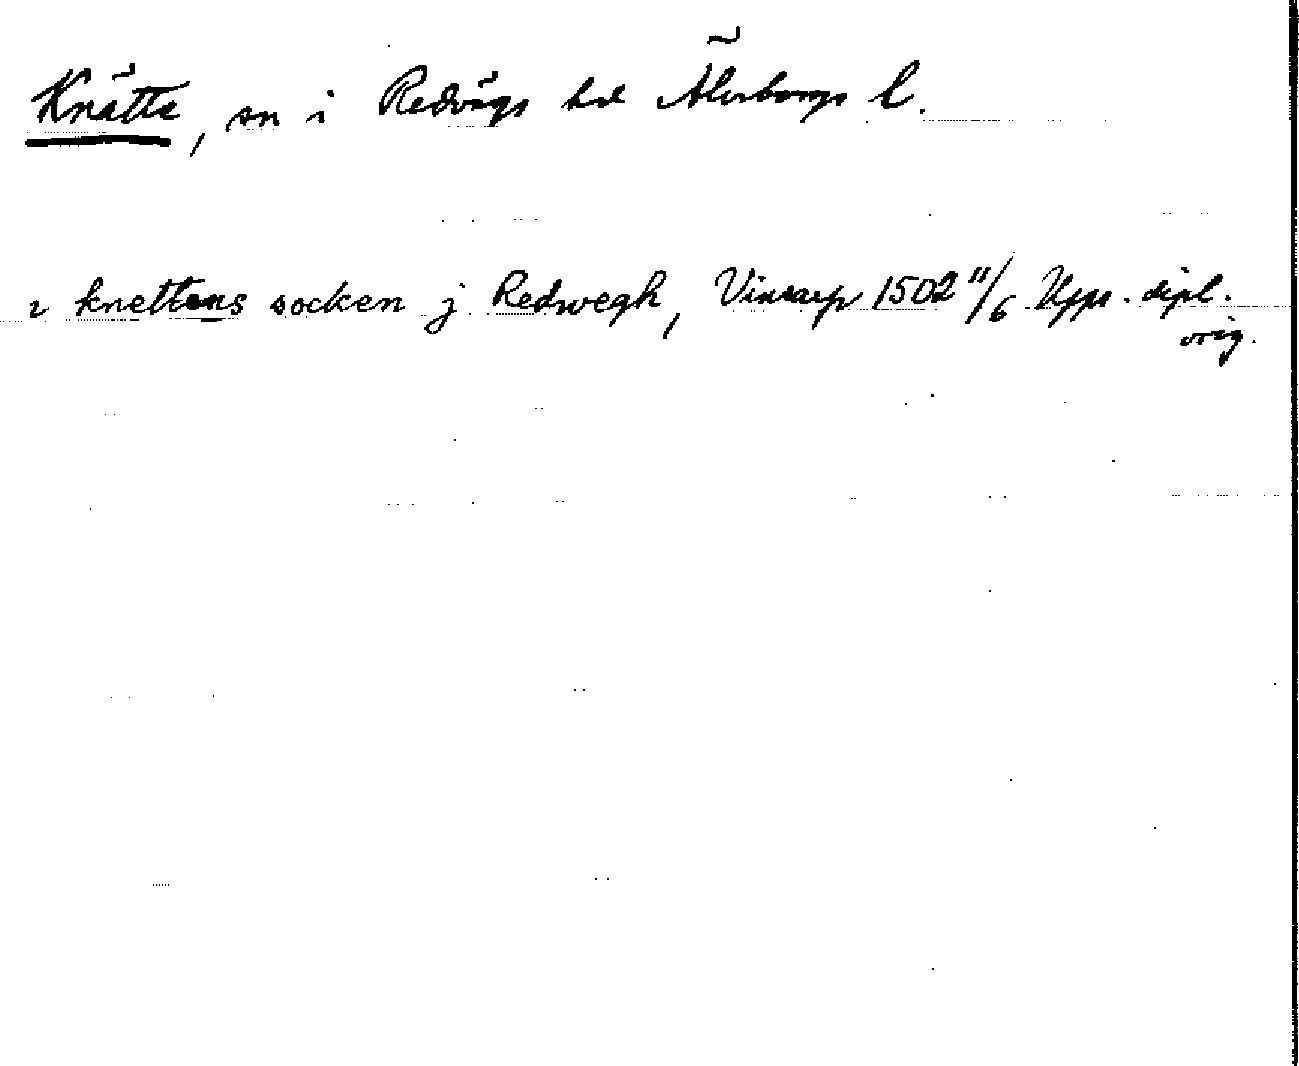 Knätte, sn i Redvägs hd Älvsborgs l.
i knettens socken j Redwegh, Vinsarp 1502 11/6 Upps. dipl.
orig.